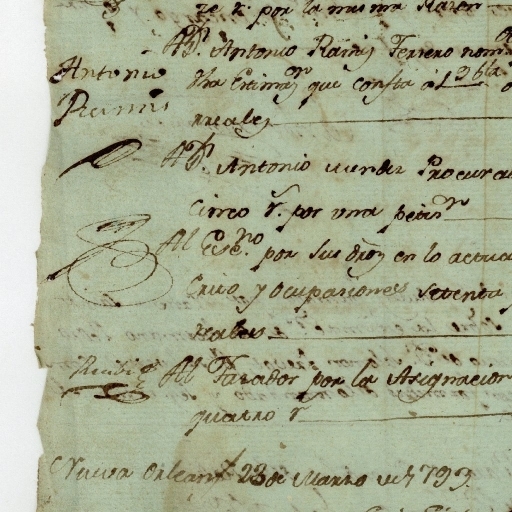 rs. por la misma Razon
A Dn. Antonio Ramis Terrero nom
Antonio
Ramis
que consta
rreales
A Dn. Antonio mendez Procurad
cinco rs. por una petion
Al Esno. por sus dros en lo actua
crito y ocupaciones setenta y
reales
Recibi
Al Tasador por la Asignacion
quatro rs
Nueva Orleans 23 de Marzo de 1793